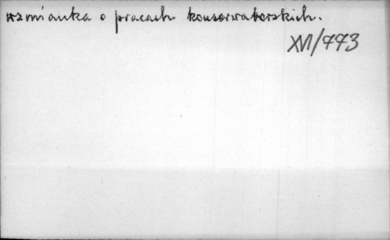 wzmianka o pracach konserwatorskich.
XVI/773